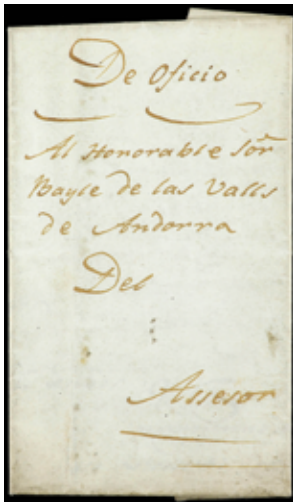 De Oficio
Al Honorable Sor
Bayle de las Valls
de Andorra
Del
Assesor